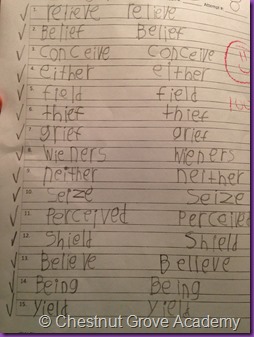 1. relieve relieve
2. Belief Belief
3. conceive conceive
4. either either
5. field field
6. thief thief
7. grief grief
8. wieners wieners
9. neither neither
10. seize seize
11. perceived perceived
12. shield shield
13. Believe Believe
14. Being Being
15. yield yield
© Chestnut Grove Academy